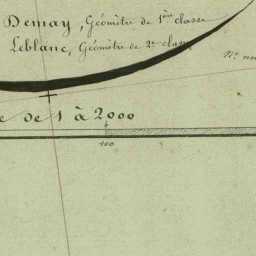 Demay, Géomètre de 1ère classe
Leblanc, Géomètre de 2e clas
N.
e de 1 à 2000
100